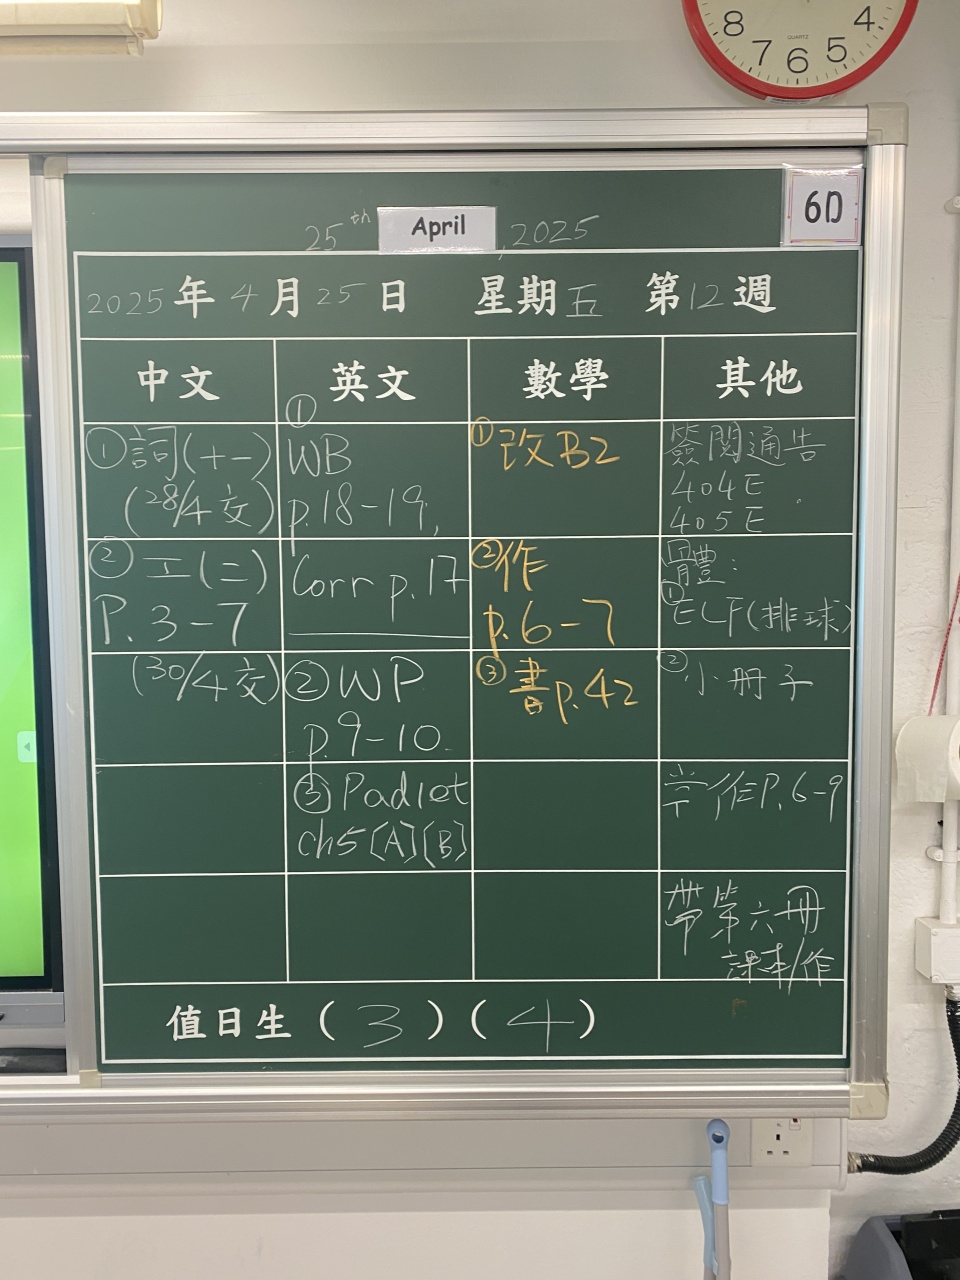 8 7 6 5 4
QUARTZ
6D
25th April, 2025
2025年4月25日 星期五 第12週
中文 英文 數學 其他
①詞(十一)
(28/4交)
②工(二)
P.3-7
(30/4交)
①
WB
p.18-19,
Corr p.17
②WP
p.9-10.
③Padlet
ch5[A][B]
①改B2
②作
p.6-7
③書p.42
簽閱通告
404E
405E
體:
①ELF(排球)
②小冊子
常作P.6-9
帶第六冊
課本/作
值日生(3)(4)